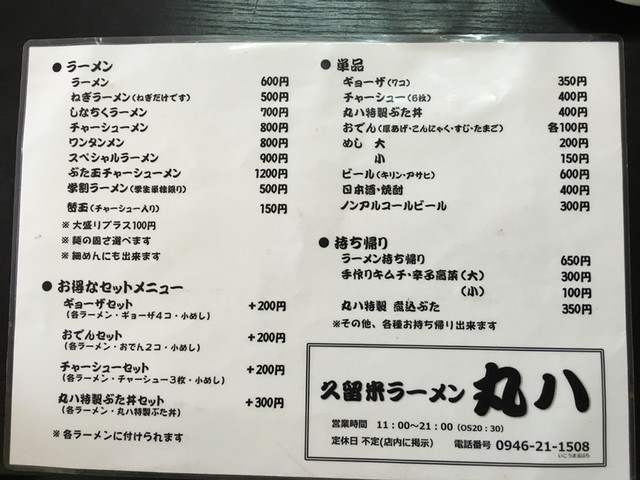 ● ラーメン
ラーメン 600円
ねぎラーメン(ねぎだけです) 500円
しなちくラーメン 700円
チャーシューメン 800円
ワンタンメン 800円
スペシャルラーメン 900円
ぶた玉チャーシューメン 1200円
学割ラーメン(学生単体限り) 500円
替玉(チャーシュー入り) 150円
※ 大盛りプラス100円
※ 麺の固さ選べます
※ 細めんにも出来ます
● お得なセットメニュー
ギョーザセット +200円
(各ラーメン・ギョーザ4コ・小めし)
おでんセット +200円
(各ラーメン・おでん2コ・小めし)
チャーシューセット +200円
(各ラーメン・チャーシュー3枚・小めし)
丸八特製ぶた丼セット +300円
(各ラーメン・丸八特製ぶた丼)
※ 各ラーメンに付けられます
● 単品
ギョーザ(7コ) 350円
チャーシュー(6枚) 400円
丸八特製ぶた丼 400円
おでん(厚あげ・こんにゃく・すじ・たまご) 各100円
めし 大 200円
小 150円
ビール(キリン・アサヒ) 600円
日本酒・焼酎 400円
ノンアルコールビール 300円
● 持ち帰り
ラーメン持ち帰り 650円
手作りキムチ・辛子高菜(大) 300円
(小) 100円
丸八特製 煮込ぶた 350円
※その他、各種お持ち帰り出来ます
久留米ラーメン 丸八
営業時間 11:00～21:00 (OS20:30)
定休日 不定(店内に掲示) 電話番号 0946-21-1508
いこうまるはち